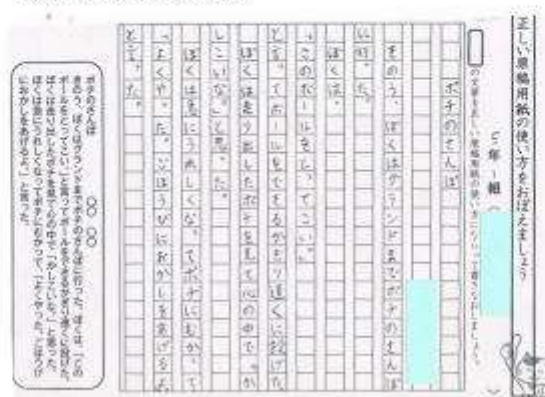 正しい原稿用紙の使い方をおぼえましょう
の文章を正しい原稿用紙の使い方にしたがって書きなおしましょう。
5年1組
ポチのさんぽ
きのう、ぼくはグランドまでポチのさんぽ
に行った。
ぼくは、
「このボールをとってこい。」
と言ってボールをできるかぎり遠くに投げた。
ぼくは走り出したポチを見て心の中で「か
しこいな。」と思った。
ぼくは急にうれしくなってポチにむかって
「よくやった。ごほうびにおかしをあげるよ。」
と言った。
ポチのさんぽ ○○ ○○
きのう、ぼくはグランドまでポチのさんぽに行った。ぼくは、「この
ボールをとってこい。」と言ってボールをできるかぎり遠くに投げた。
ぼくは走り出したポチを見て心の中で「かしこいな。」と思った。
ぼくは急にうれしくなってポチにむかって、「よくやった。ごほうび
におかしをあげるよ。」と言った。